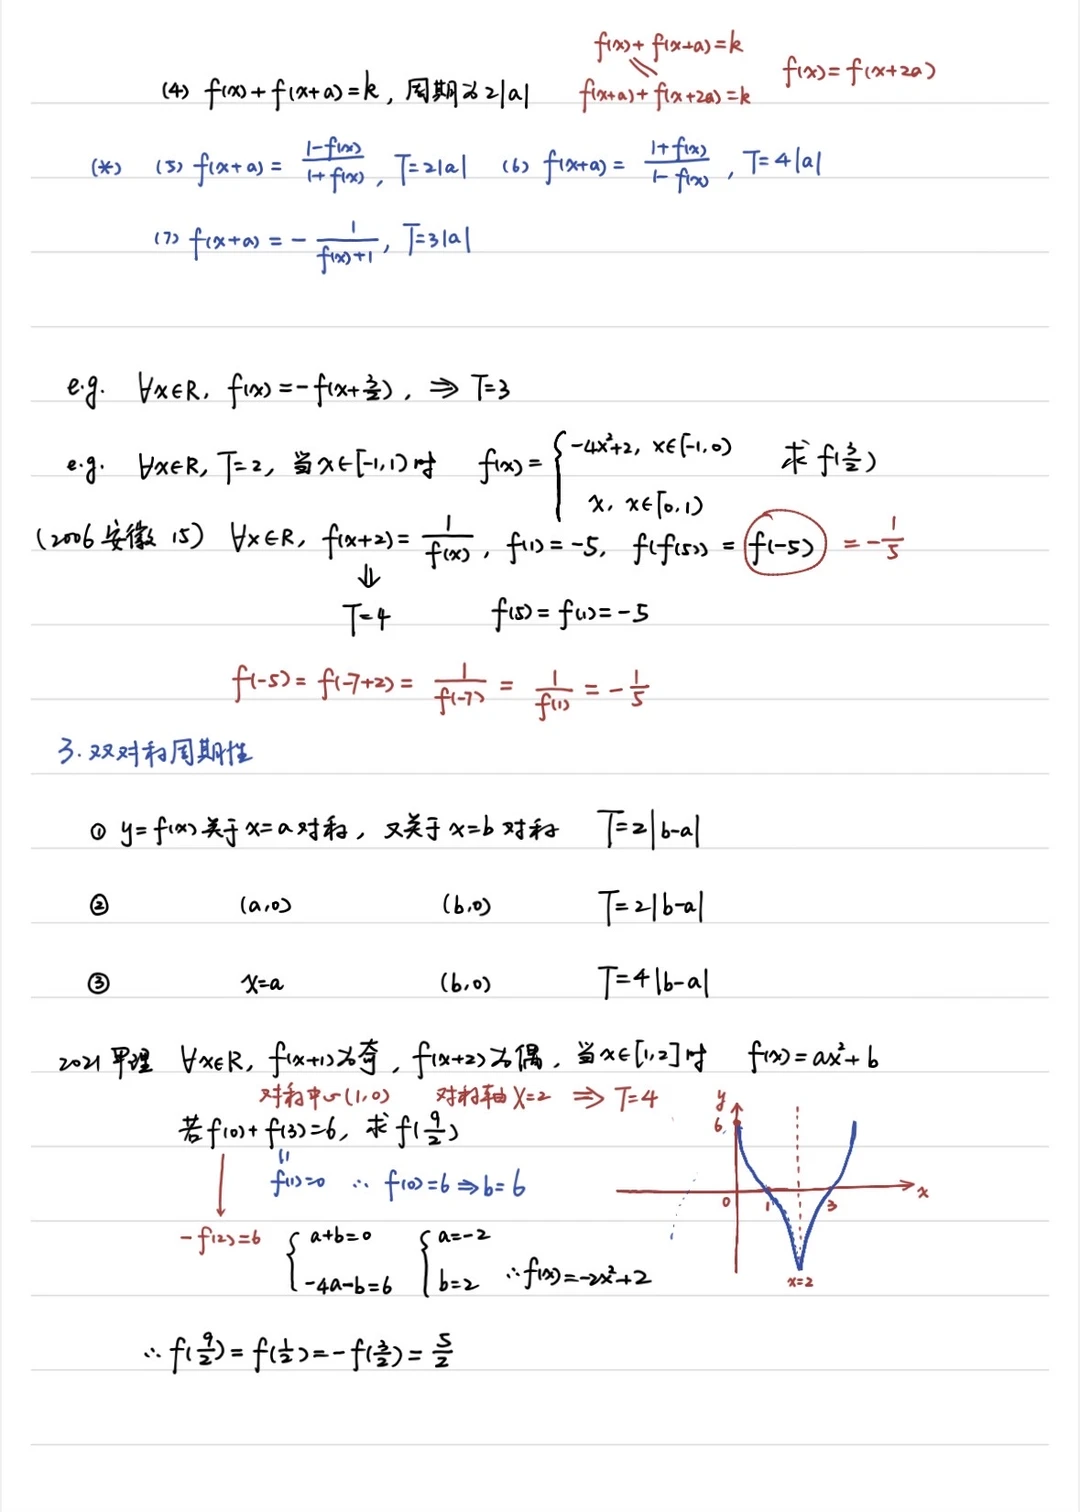 f(x)+f(x+a)=k
(4) f(x)+f(x+a)=k, 周期为2|a| f(x+a)+f(x+2a)=k f(x)=f(x+2a)
(*) (5) f(x+a)= (1-f(x))/(1+f(x)), T=2|a| (6) f(x+a)= (1+f(x))/(1-f(x)), T=4|a|
(7) f(x+a)= - 1/(f(x)+1), T=3|a|
e.g. ∀x∈R, f(x)=-f(x+3/2), ⇒ T=3
e.g. ∀x∈R, T=2, 当x∈[-1,1)时 f(x)={ -4x²+2, x∈[-1,0) 求f(3/2)
x, x∈[0,1)
(2006安徽 15) ∀x∈R, f(x+2)= 1/f(x), f(1)=-5, f(f(5)) = f(-5) = -1/5
⇓
T=4 f(5)=f(1)=-5
f(-5)=f(-7+2)= 1/f(-7) = 1/f(1) = -1/5
3.双对称周期性
① y=f(x)关于x=a对称, 又关于x=b对称 T=2|b-a|
② (a,0) (b,0) T=2|b-a|
③ x=a (b,0) T=4|b-a|
2021甲理 ∀x∈R, f(x+1)为奇, f(x+2)为偶, 当x∈[1,2]时 f(x)=ax²+b
对称中心(1,0) 对称轴x=2 ⇒ T=4
若f(0)+f(3)=6, 求f(9/2)
f(1)=0 ∴ f(0)=6⇒b=6
-f(2)=6 { a+b=0 { a=-2
-4a-b=6 b=2 ∴f(x)=-2x²+2
∴ f(9/2)=f(1/2)=-f(3/2)=5/2
y
6
0 1 3 x
x=2